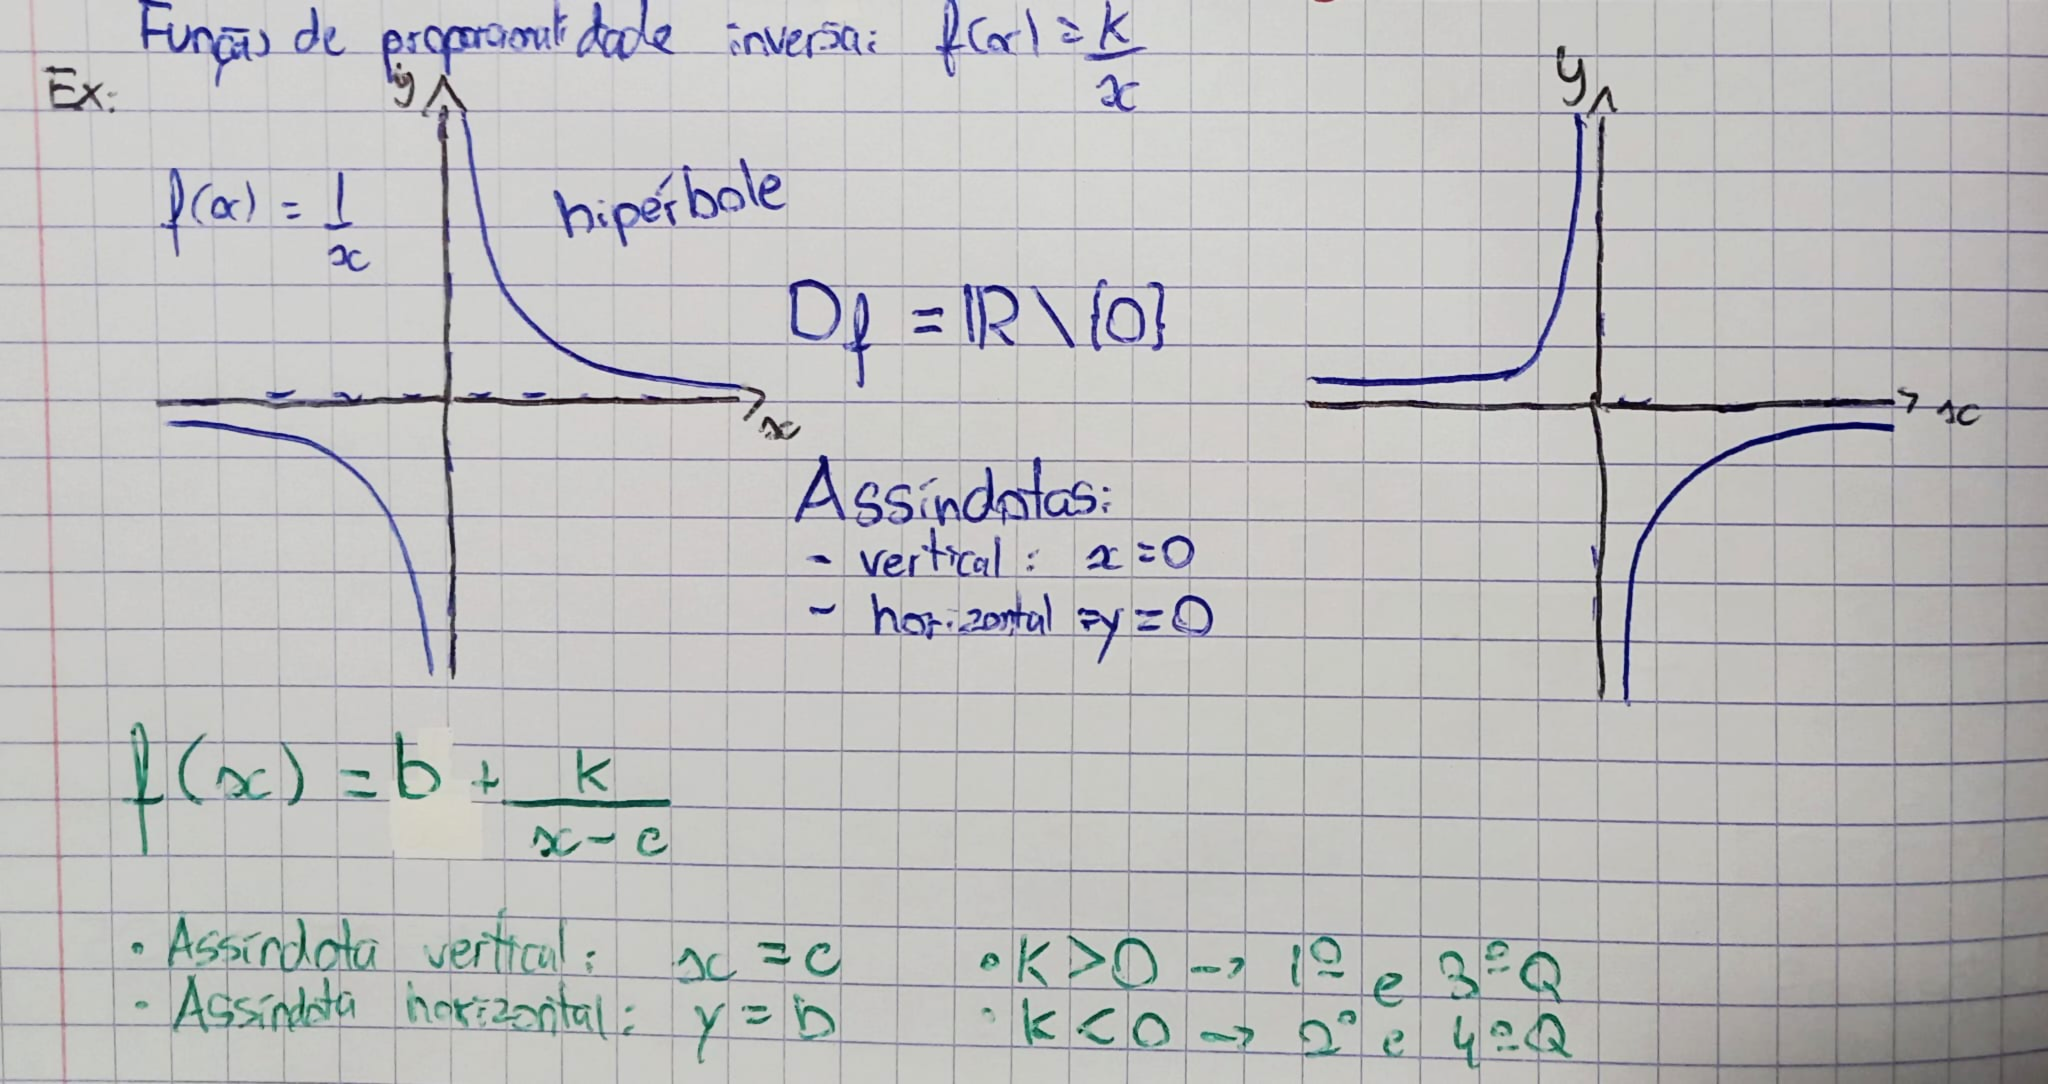 Função de proporcionalidade inversa: f(x) = k/x
Ex:
y
y
f(x) = 1/x
hipérbole
Df = ℝ \ {0}
x
x
Assíndotas:
- vertical: x = 0
- horizontal = y = 0
f(x) = b + k/(x - c)
• Assíndota vertical: x = c
• K > 0 → 1º e 3º Q
• Assíndota horizontal: y = b
• K < 0 → 2º e 4º Q